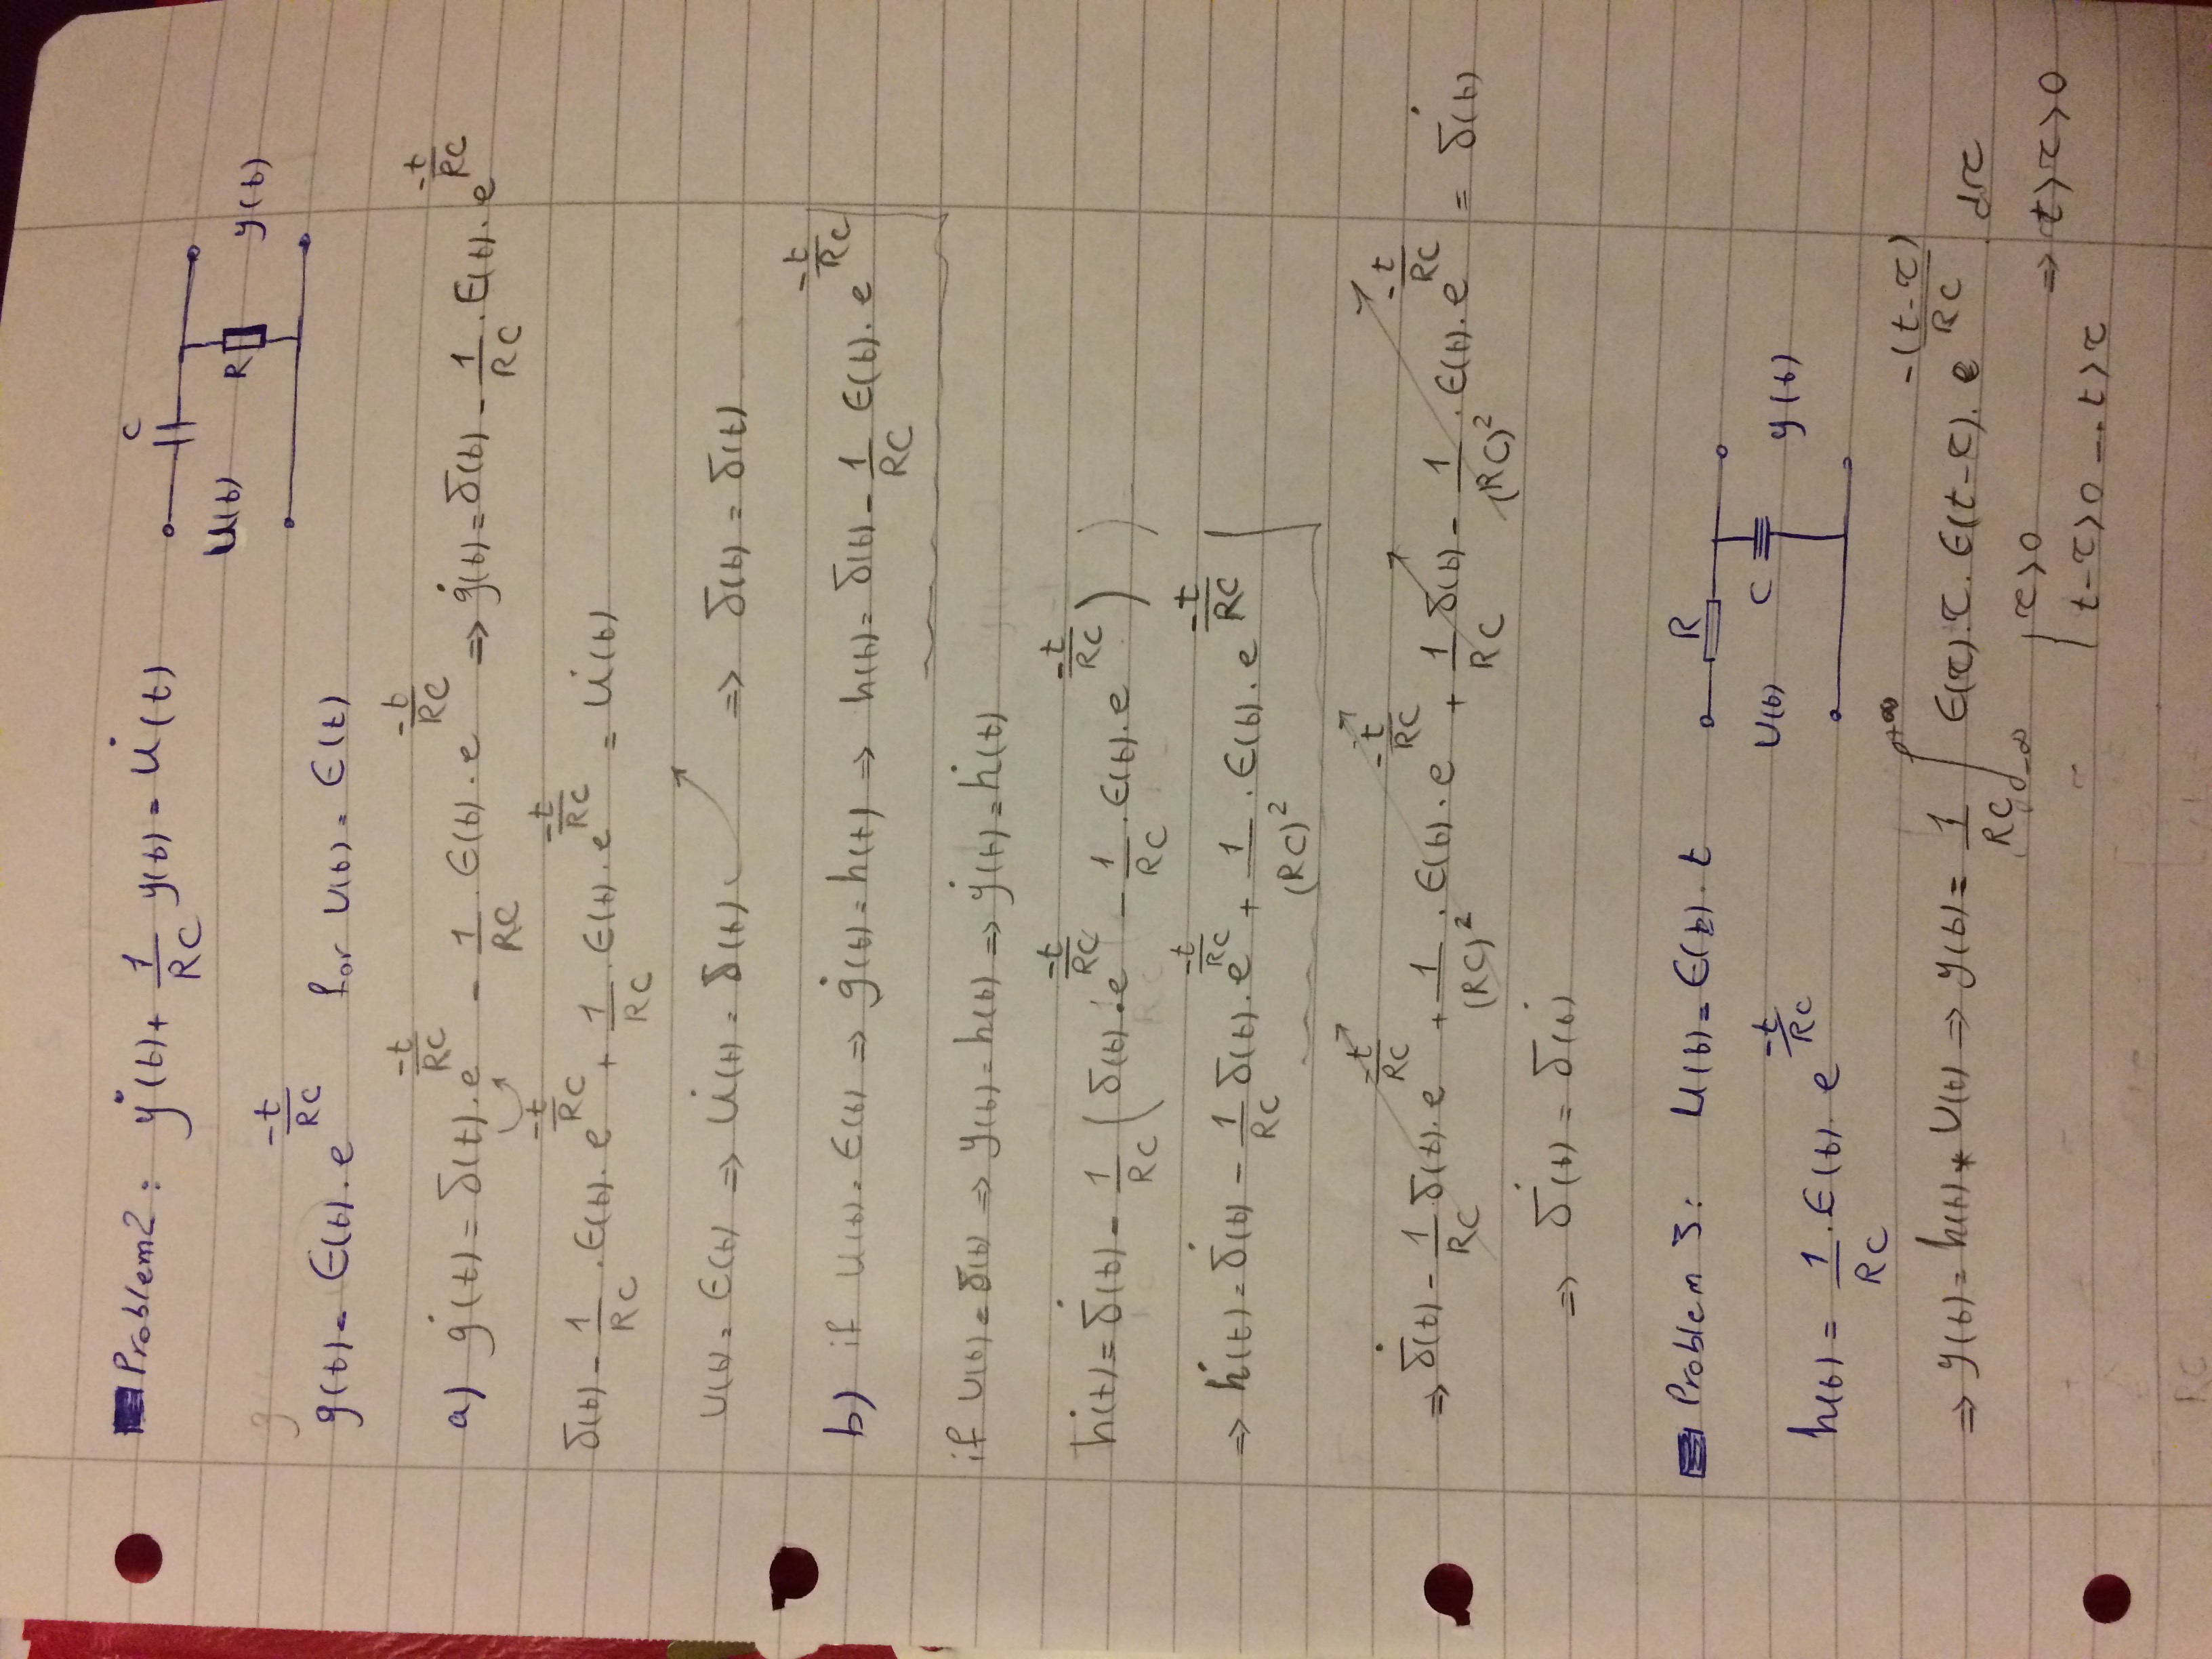 Problem 2: ẏ(t) + 1/RC y(t) = u̇(t)
C
U(t) R y(t)
g(t) = ϵ(t) . e^(-t/RC) for U(t) = ϵ(t)
a) ġ(t) = δ(t) . e^(-t/RC) - 1/RC . ϵ(t) . e^(-t/RC) ⇒ ġ(t) = δ(t) - 1/RC . ϵ(t) . e^(-t/RC)
δ(t) - 1/RC . ϵ(t) . e^(-t/RC) + 1/RC . ϵ(t) . e^(-t/RC) = u̇(t)
U(t) = ϵ(t) ⇒ u̇(t) = δ(t) ⇒ δ(t) = δ(t)
b) if U(t) = ϵ(t) ⇒ ġ(t) = h(t) ⇒ h(t) = δ(t) - 1/RC ϵ(t) . e^(-t/RC)
if U(t) = δ(t) ⇒ y(t) = h(t) ⇒ ẏ(t) = ḣ(t)
ḣ(t) = δ̇(t) - 1/RC ( δ(t) . e^(-t/RC) - 1/RC . ϵ(t) . e^(-t/RC) )
⇒ ḣ(t) = δ̇(t) - 1/RC δ(t) . e^(-t/RC) + 1/(RC)² . ϵ(t) . e^(-t/RC)
⇒ δ̇(t) - 1/RC δ(t) . e^(-t/RC) + 1/(RC)² . ϵ(t) . e^(-t/RC) + 1/RC δ(t) - 1/(RC)² . ϵ(t) . e^(-t/RC) = δ̇(t)
⇒ δ̇(t) = δ̇(t)
Problem 3: U(t) = ϵ(t) . t
R
U(t) C y(t)
h(t) = 1/RC . ϵ(t) . e^(-t/RC)
⇒ y(t) = h(t) * U(t) ⇒ y(t) = 1/RC ∫_{-∞}^{+∞} ϵ(τ) . τ . ϵ(t-τ) . e^(-(t-τ)/RC) dτ
τ>0
t-τ>0 → t>τ ⇒ t>τ>0